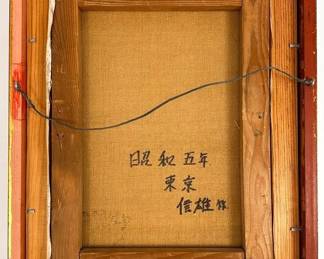 昭和五年
東京
信雄作